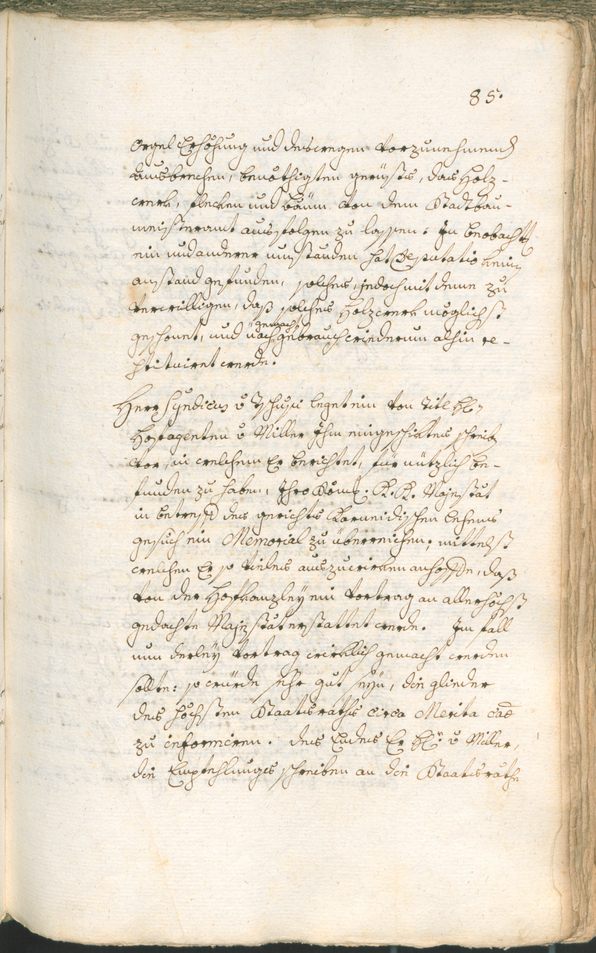 85.
Orgel Erhöhung und deswegen vorzunehmend
ausbrechen, benöthigten gerüsts, das Holz-
werk, flecken und Bäum von dem Stadtbau-
meisteramt ausfolgen zu lassen: In beobacht
ein und anderer umständen hat Deputatio kein
anstand gefunden, solches, jedoch mit deme zu
verwilligen, daß solches Holzwerk möglichst
geschonet, und nach gemacht gebrauch wiederum alhin re-
stituiret werde.
Herr Syndicus v Tschusi leget ein von Titl H:
Hofagenten v Miller Ihm eingeschiktes schreib
vor, in welchem Er berichtet, für nützlich be-
funden zu haben, Ihro Röm: K. K. Majestät
in betreff des gerichts Karneidischen Lehens
gesuch ein Memorial zu überreichen, mittelst
welchen Er so vieles auszuwirken anhoffe, daß
von der Hofkanzley ein Vortrag an allerhöchst
gedachte Majestät erstattet werde. Im fall
nun derley Vortrag wirklich gemacht werden
sollte: so wurde sehr gut seyn, die glieder
des höchsten Staatsraths circa Merita caē
zu informiren. Des Endes Er H: v Miller,
die Empfehlungs schreiben an die Staatsräthe